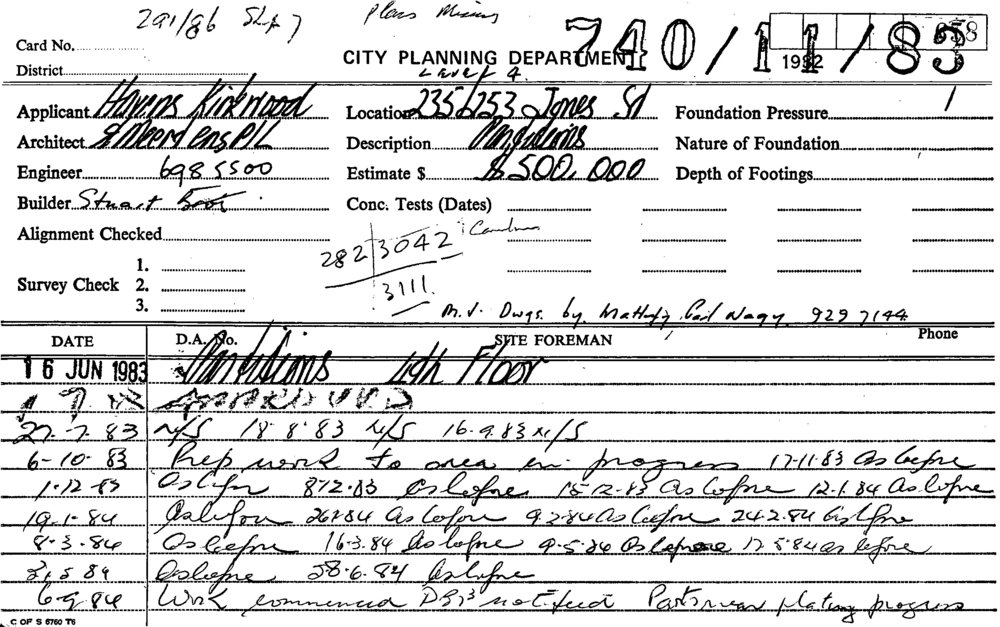 291/86 Sht 7 Plans Missing
Card No. 740/11/83
CITY PLANNING DEPARTMENT 1982
District Level 4
Applicant Havens Kirkwood Location 235/253 Jones St Foundation Pressure
Architect & Meerdens P/L Description Partitions Nature of Foundation
Engineer 698 5500 Estimate $ $500,000 Depth of Footings
Builder Stuart Bros Conc. Tests (Dates)
Alignment Checked
282 3042
1.
Survey Check 2. 3111.
3. M.V. Dwgs. by 929 7144
DATE D.A. No. SITE FOREMAN Phone
16 JUN 1983 Partitions 4th Floor
APPROVED
27-7-83 N/S 18-8-83 N/S 16-9-83 N/S
6-10-83 Prep work to area in progress 17-11-83 As before
1-12-83 As before 8-12-83 As before 15-12-83 As before 12-1-84 As before
19-1-84 As before 26-1-84 As before 9-2-84 As before 24-2-84 As before
8-3-84 As before 16-3-84 As before 9-5-84 As before 17-5-84 as before
As before 28-6-84 As before
6-9-84 Work commenced notified progress
C OF S 6760 T6